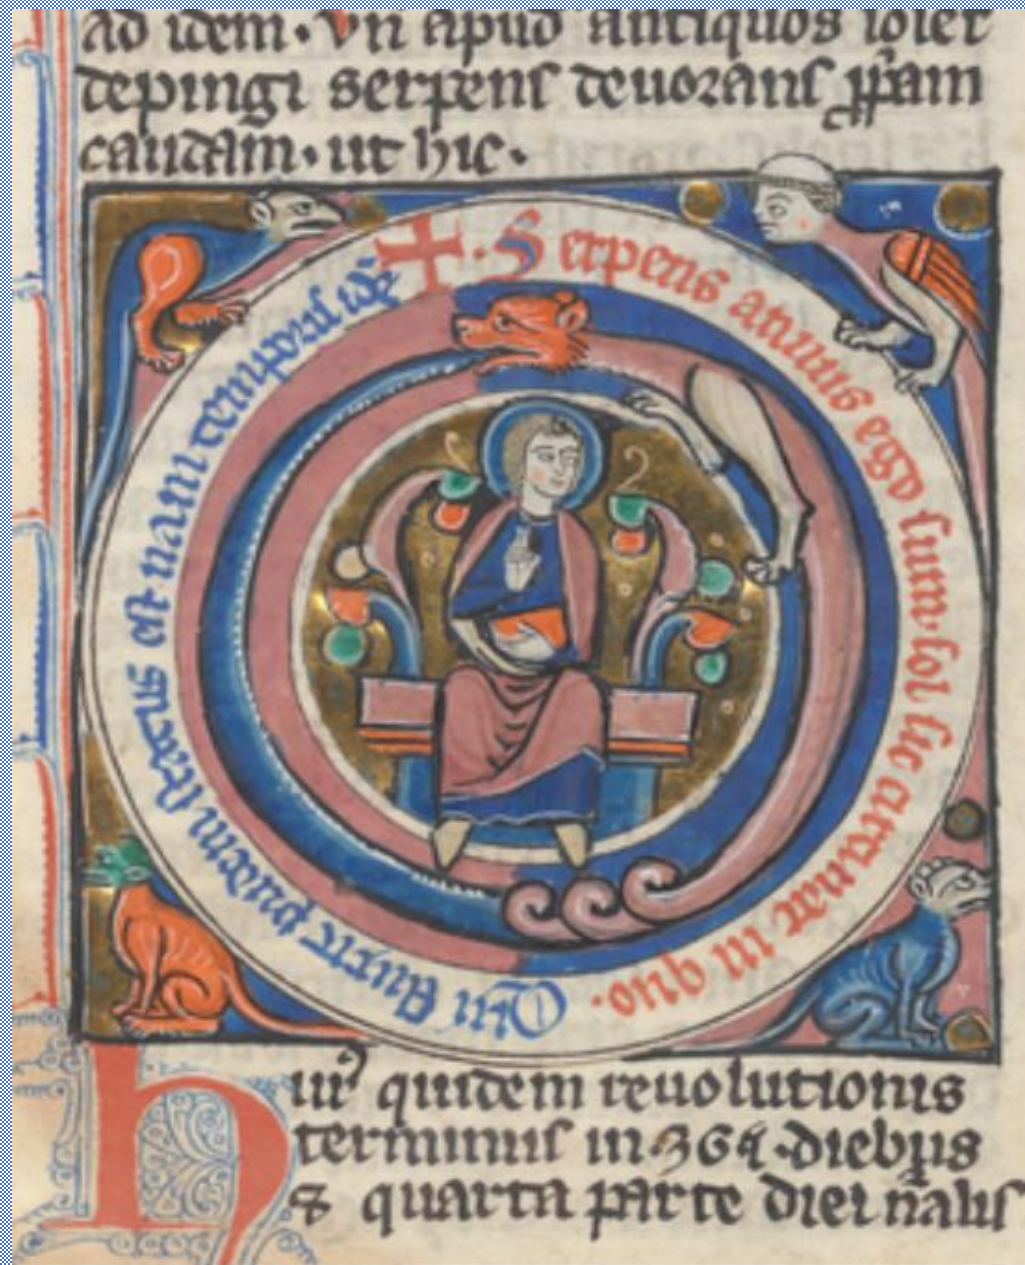 ad idem. Vn apud antiquos solet
depingi serpens deuorans ppam
caudam. ut hic.
+. Serpens annus ego sum. sol sic
in quo.
est nam temporis idē
Huiꝰ quidem reuolutionis
terminus in 365. diebus
& quarta parte diei nalis